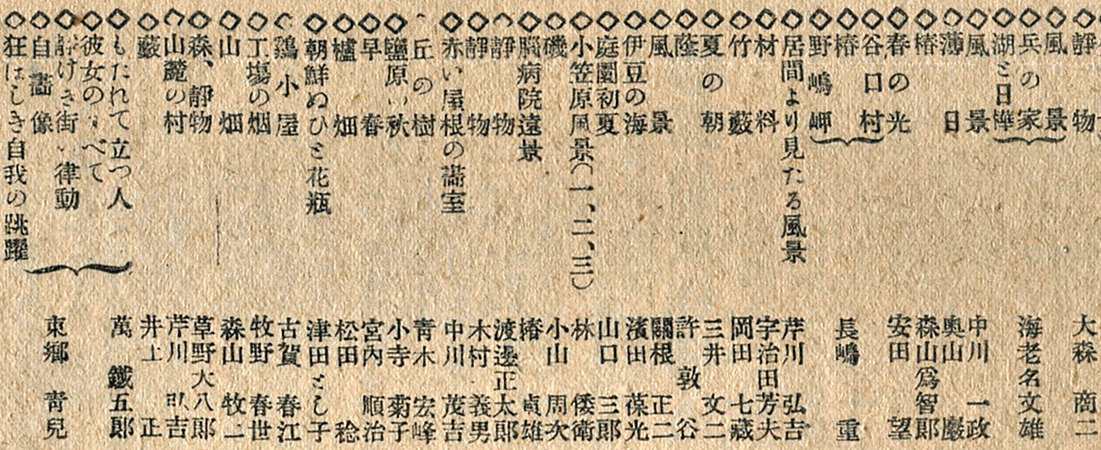 ◇靜物 大森 商二
◇風景
◇兵の家 海老名文雄
◇湖と日
◇風景 中川 一政
◇薄日 奥山 巖
◇椿 森山爲智郎
◇春の光 安田 望
◇谷口村
◇椿 長嶋 重
◇野嶋岬
◇居間より見たる風景 芹川 弘吉
◇材料 宇治田芳夫
◇竹藪 岡田 七藏
◇夏の朝 三井 文二
◇蔭 許 敦谷
◇風景 關根 正二
◇伊豆の海 濱田 葆光
◇庭園初夏 山口 三郎
◇小笠原風景(一、二、三) 林 倭衛
◇磯 小山 周次
◇腦病院遠景 椿 貞雄
◇靜物 渡邊正太郎
◇靜物 木村 義男
◇赤い屋根の畵室 中川 茂吉
丘の樹 青木 宏峰
◇鹽原の秋 小寺 菊子
◇早春 宮内 順治
◇櫨畑 松田 稔
◇朝鮮ぬひと花瓶 津田とし子
鷄小屋 古賀 春江
◇工塲の烟 牧野 春世
◇山畑 森山 牧二
◇森、靜物 草野大八郎
◇山麓の村 芹川 吉
◇藪 井上 正
◇もたれて立つ人 萬 鐵五郎
◇彼女のすべて
◇靜けき街の律動 東郷 靑兒
◇自畵像
◇狂ほしき自我の跳躍